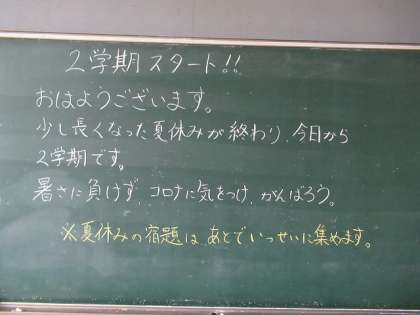 2学期スタート!!
おはようございます。
少し長くなった夏休みが終わり、今日から
2学期です。
暑さに負けず、コロナに気をつけ、がんばろう。
※夏休みの宿題は、あとでいっせいに集めます。